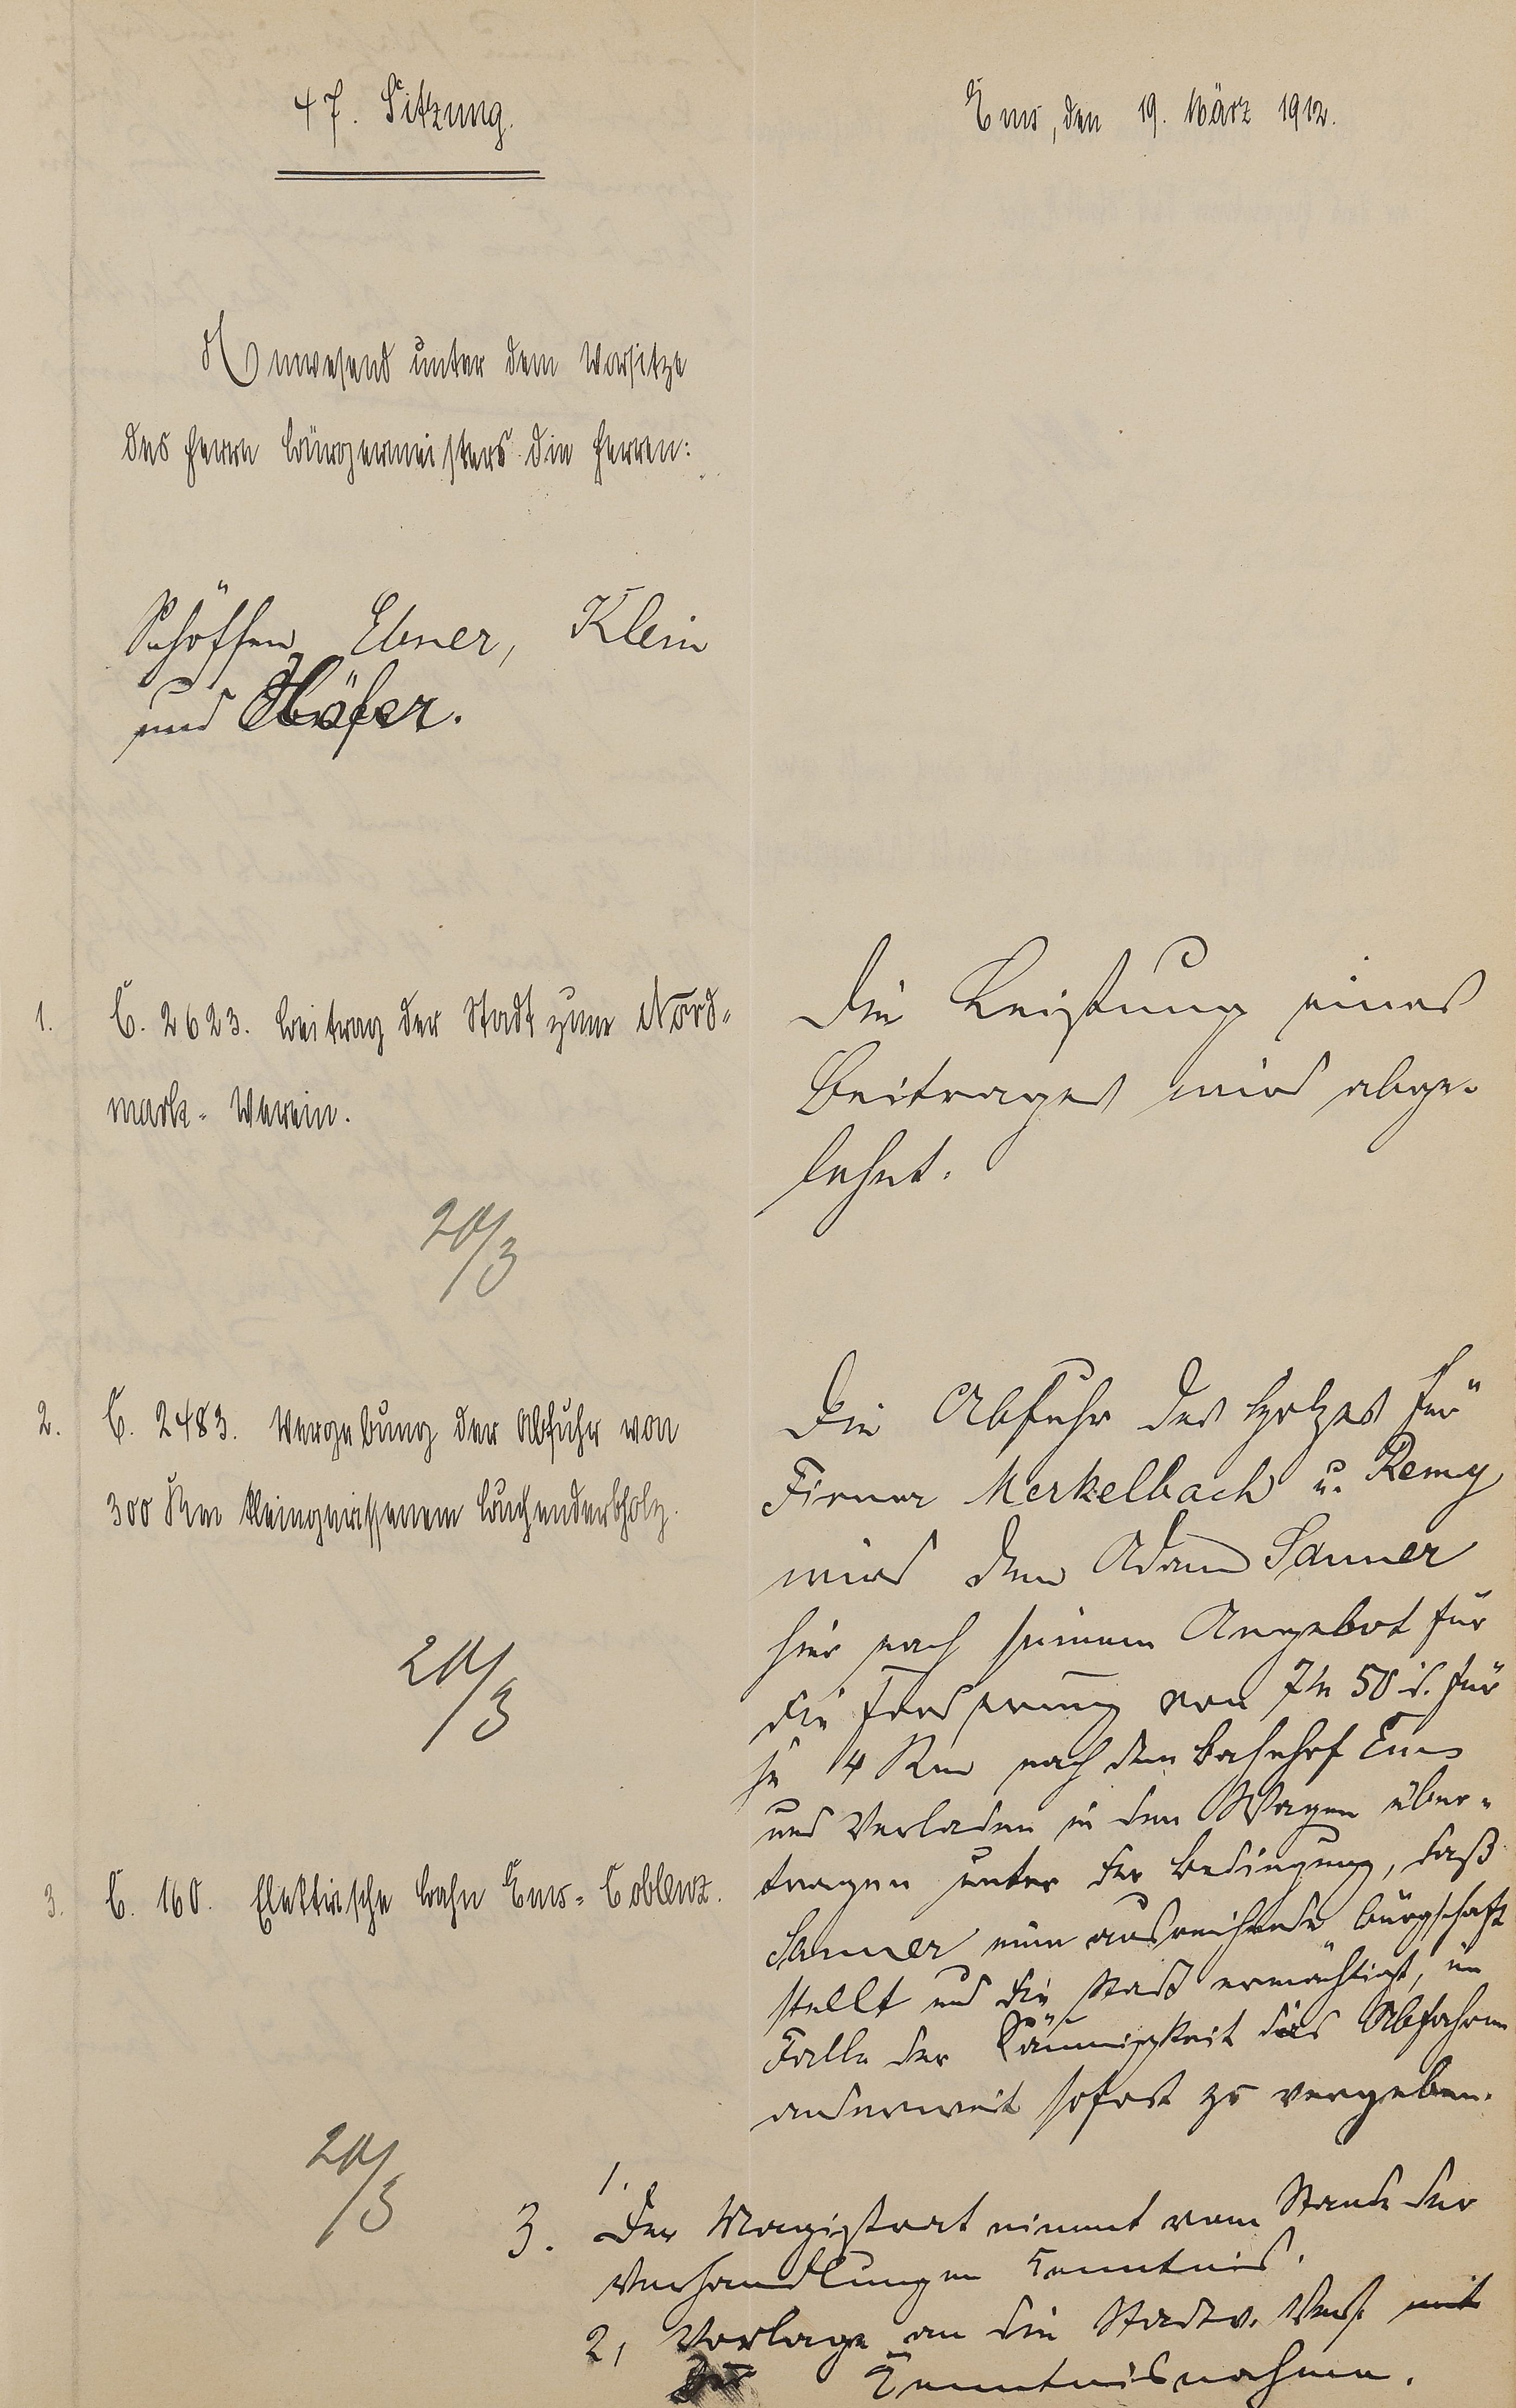 47. Sitzung.
Ems, den 19. März 1912.
Anwesend unter dem Vorsitze
des Herrn Bürgermeisters die Herren:
Schöffen Ebner, Klein
und Höfer.
1. C. 2623. Beitrag der Stadt zum Nord-
mark-Verein.
Die Leistung eines
Beitrages wird abge-
lehnt.
2. C. 2483. Vergebung der Abfuhr von
300 Rm kleingerissenem Buchenderbholz.
Die Abfuhr des Holzes für
Firma Merkelbach u. Remy
wird dem Adam Sanner
hier nach seinem Angebot für
die Forderung von 7 M 50 d. für
je 4 Rm nach dem Bahnhof Ems
und Verladen in den Wagen über-
tragen unter der Bedingung, daß
Sanner eine ausreichende Bürgschaft
stellt und die Stadt ermächtigt, im
Falle der Säumigkeit das Abfahren
anderweit sofort zu vergeben.
3. C. 160. Elektrische Bahn Ems-Coblenz.
3. 1. Der Magistrat nimmt vom Stande der
Verhandlungen Kenntnis.
2, Vorlage an die Stadtv. Vers. mit
Kenntnisnahme.